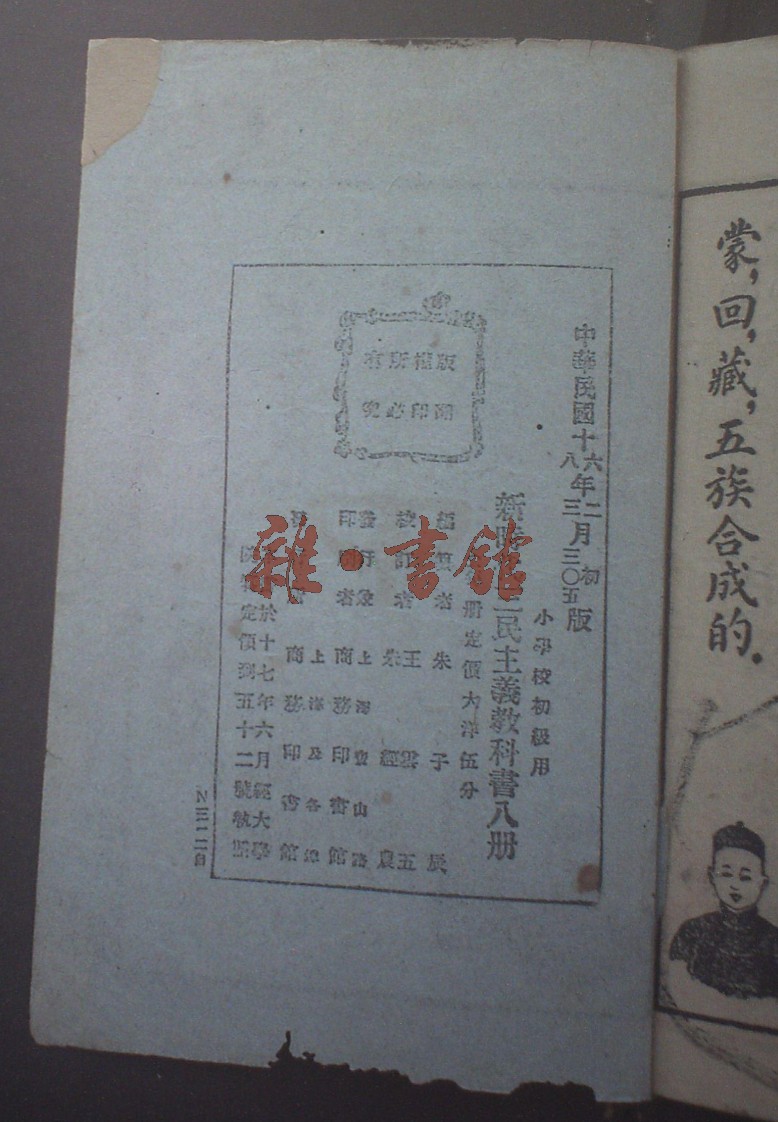 蒙，回，藏，五族合成的．
中華民國十六年二月初版
八三三〇五
小學校初級用
新時 三民主義教科書八册
册定價大洋伍分
版權所有
翻印必究
編纂者 朱子辰
校訂者 王雲五
朱經農
發行兼 上海寶山路
印刷者 商務印書館
上海及各埠
商務印書館
於十七年六月經大學
定價到五十二號執照
N三一二自
雜·書館